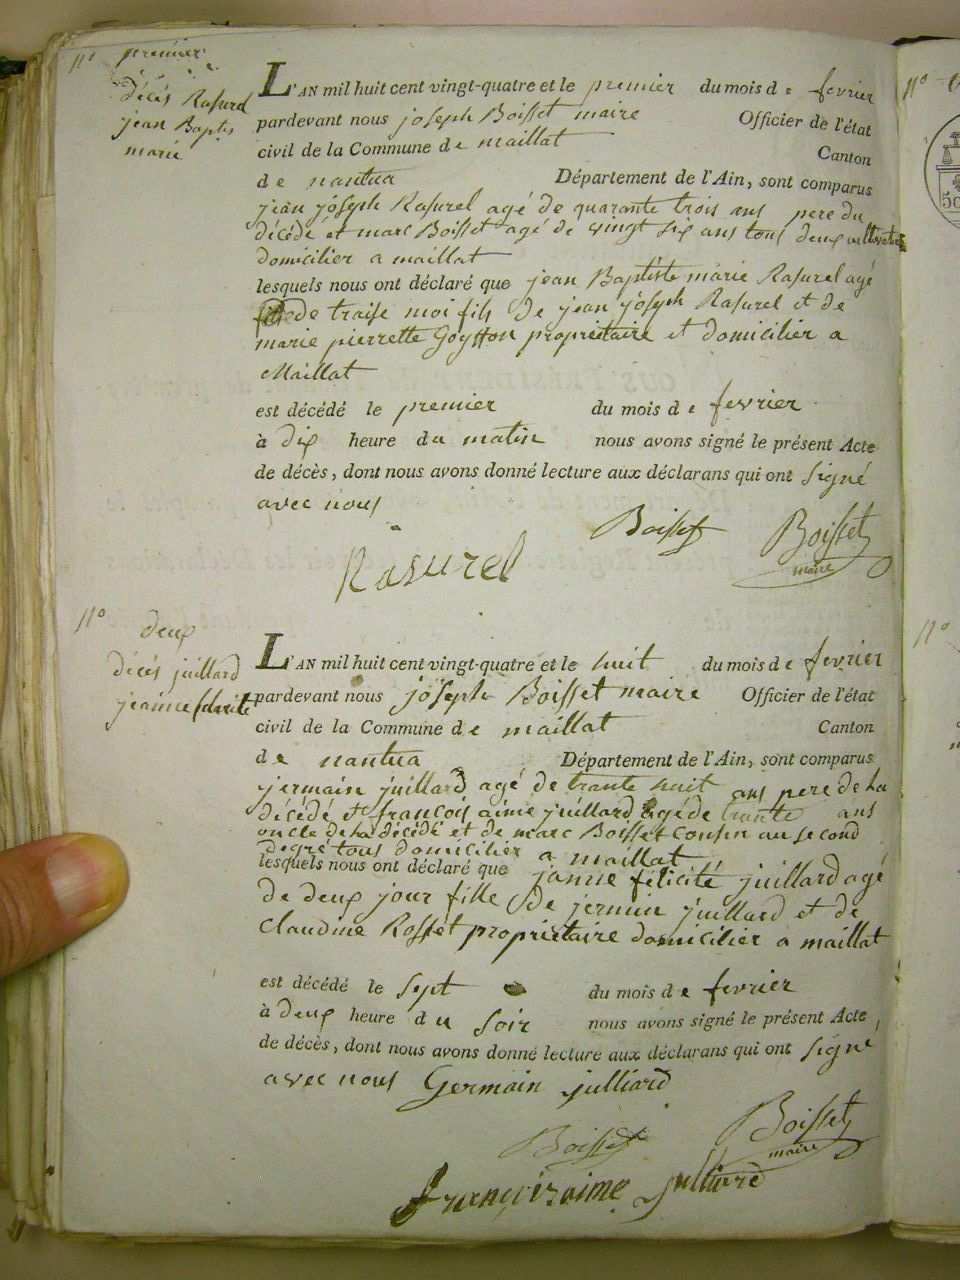 N° premier
décès Rasurel
jean Baptis
marie
L'AN mil huit cent vingt-quatre et le premier du mois de fevrier
pardevant nous joseph Boisset maire Officier de l'état
civil de la Commune de maillat Canton
de nantua Département de l'Ain, sont comparus
jean joseph Rasurel agé de quarante trois ans pere du
décédé et marc Boisset agé de vingt six ans tous deux
domicilier a maillat
lesquels nous ont déclaré que jean Baptiste marie Rasurel agé
de traise moi fils de jean joseph Rasurel et de
marie pierrette propriétaire et domicilier a
Maillat
est décédé le premier du mois de fevrier
à dix heure du matin nous avons signé le présent Acte
de décès, dont nous avons donné lecture aux déclarans qui ont signé
avec nous
Boisset Boisset
maire
Rasurel
N° deux
décés juillard
jeanne
L'AN mil huit cent vingt-quatre et le huit du mois de fevrier
pardevant nous joseph Boisset maire Officier de l'état
civil de la Commune de maillat Canton
de nantua Département de l'Ain, sont comparus
jermain juillard agé de trante huit ans pere de La
décédé et francois aimé juillard agé de trante ans
oncle de la décédé et de marc Boisset cousin au second
degré tous domicilier a maillat
lesquels nous ont déclaré que janne félicité juillard agé
de deux jour fille de jermin juillard et de
Claudine Rosset propriétaire domicilier a maillat
est décédé le sept du mois de fevrier
à deux heure du soir nous avons signé le présent Acte
de décès, dont nous avons donné lecture aux déclarans qui ont signé
avec nous Germain julliard
Boisset Boisset
maire
françoizaime julliard
N°
N°